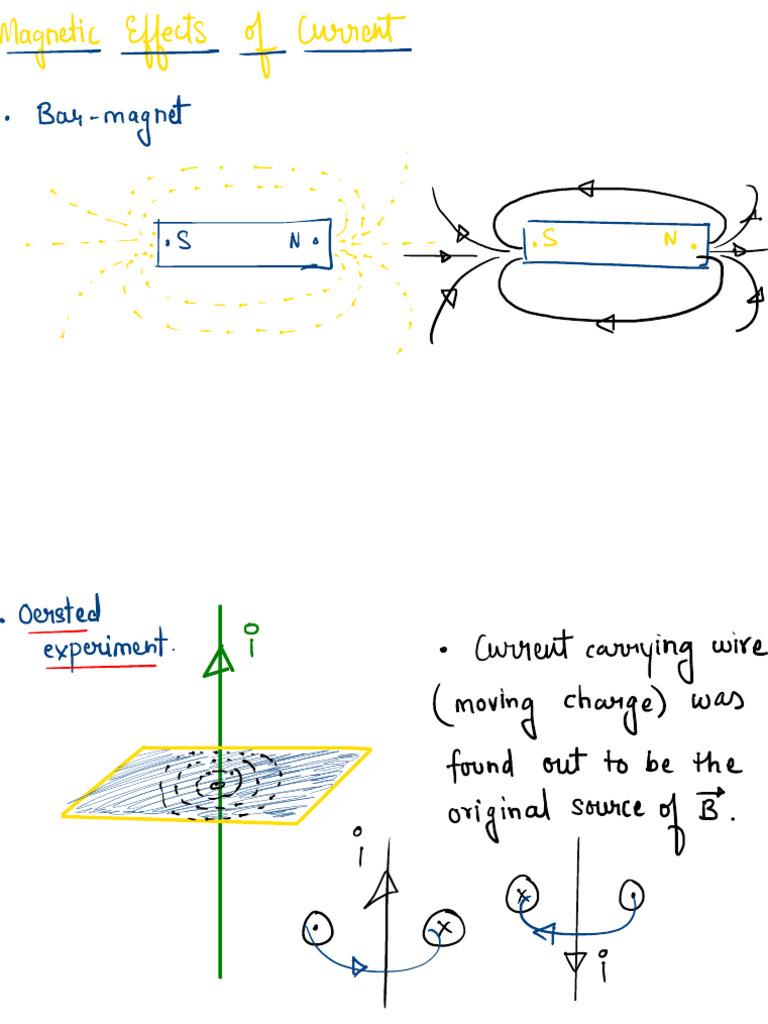 Magnetic Effects of Current
• Bar-magnet
S N
S N
• Oersted
experiment.
i
• Current carrying wire
(moving charge) was
found out to be the
original source of B⃗.
i
i